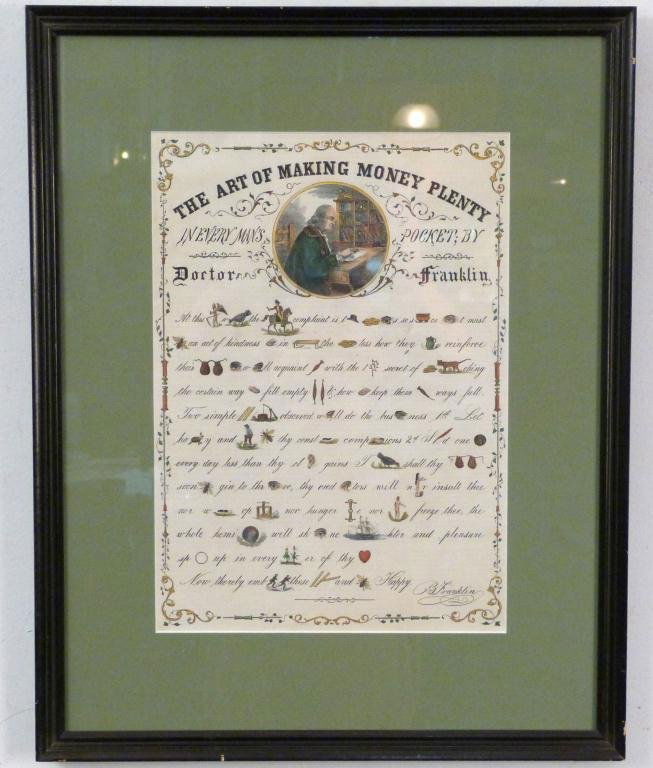 THE ART OF MAKING MONEY PLENTY
IN EVERY MAN'S POCKET; BY
Doctor Franklin
At this the complaint is t s se s t must
an act of kindness in the less how they reinforce
their w ll acquaint with the 1 secret of ching
the certain way fill empty & how keep them ways full.
Two simple observed w ll do the bus ness 1st Let
ho y and thy const comp ions 2d S d one
every day less than thy cl gains T shall thy
soon gin to thr ve, thy cred tors will n r insult thee
nor w op nor hunger e nor freeze thee, the
whole hemi will sh ne hter and pleasure
sp up in every er of thy
Now, thereby emb these and Happy
B Franklin